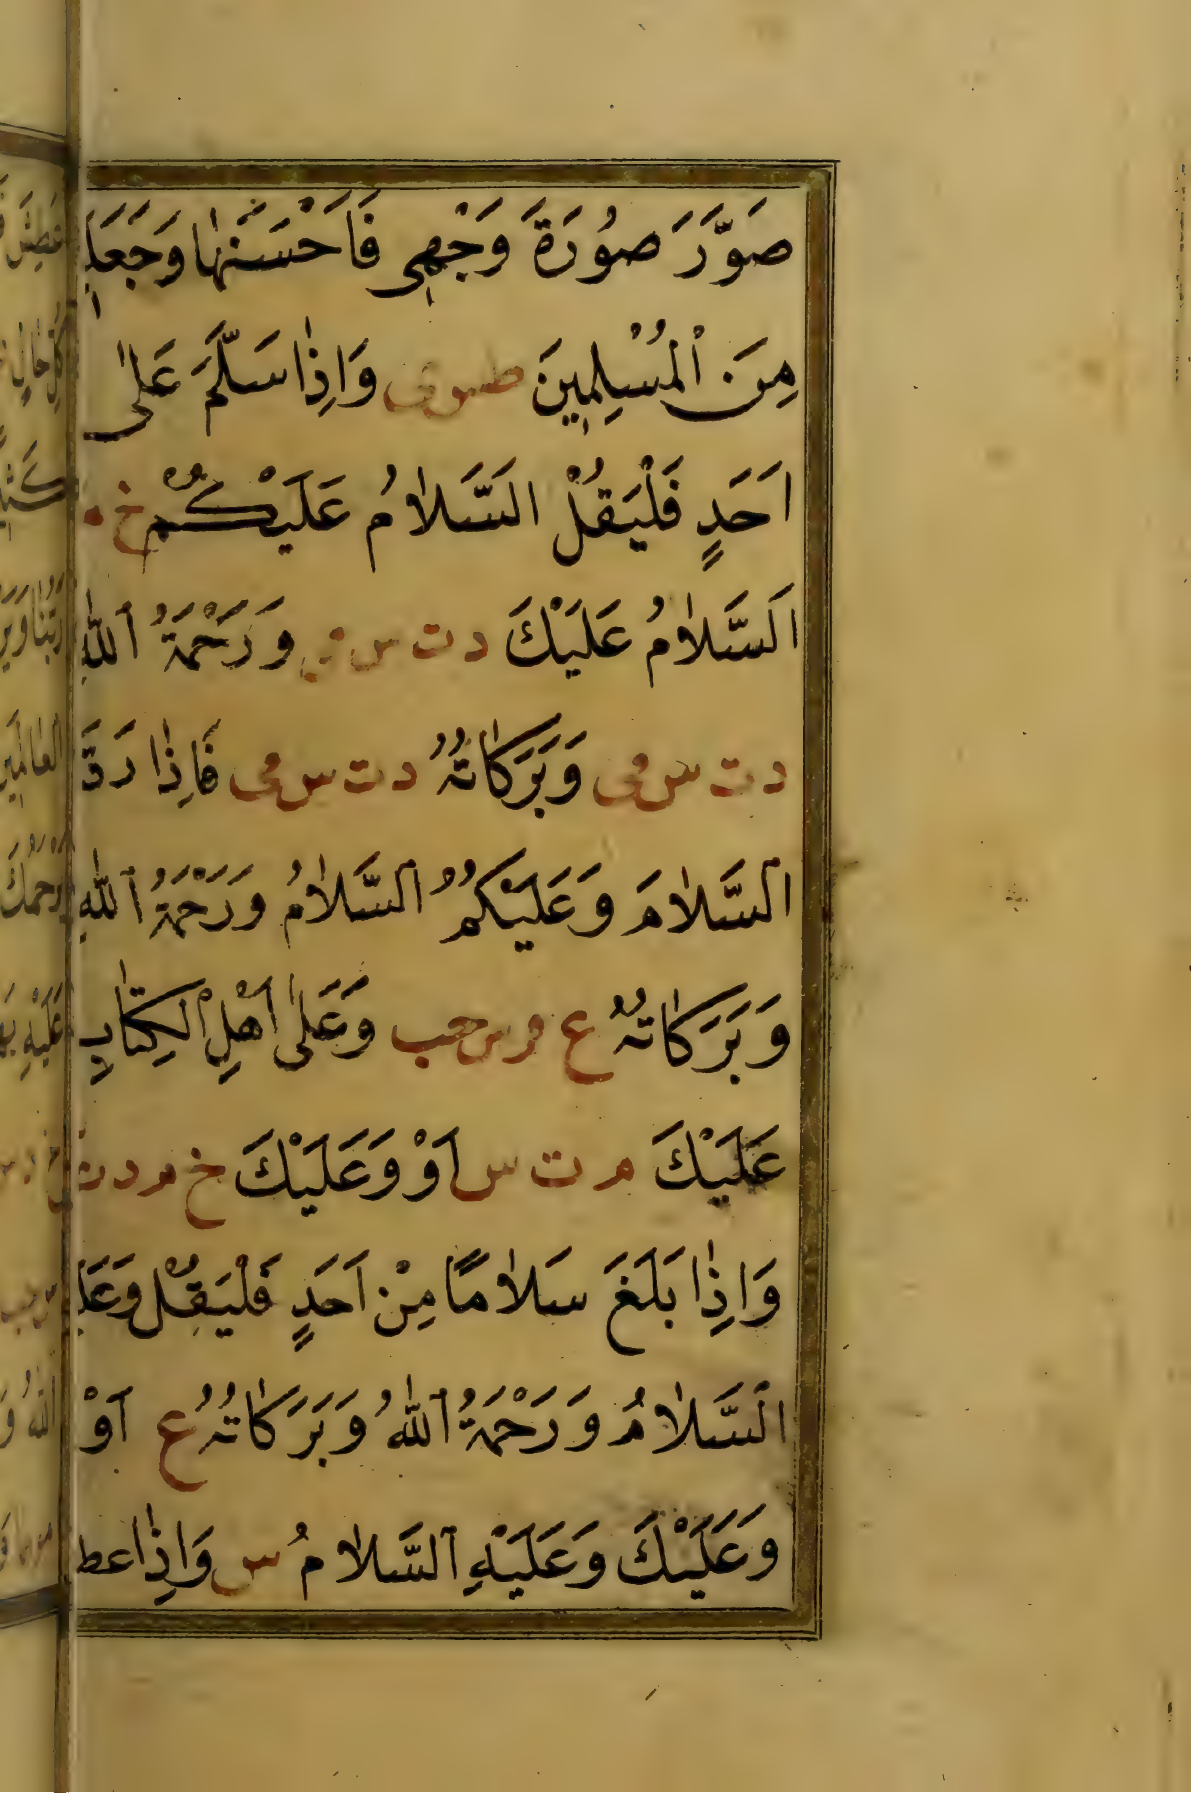 صَوَّرَ صُورَةَ وَجْهِى فَاَحْسَنَهٰا وَجَعَلَ
مِنَ الْمُسْلِمِينَ طس وى وَاِذٰا سَلَّمَ عَلىٰ
اَحَدٍ فَلْيَقُلْ السَّلاٰمُ عَلَيْكُمْ خ م
اَلسَّلاٰمُ عَلَيْكَ د ت س مى وَرَحْمَةُ اللّٰهِ
د ت س مى وَبَرَكٰاتُهُ د ت س مى فَاِذٰا رَدَّ
السَّلاٰمَ وَعَلَيْكُمُ السَّلاٰمُ وَرَحْمَةُ اللّٰهِ
وَبَرَكٰاتُهُ ع مر س حب وَعَلىٰ اَهْلِ الْكِتٰابِ
عَلَيْكَ م ت س اَوْ وَعَلَيْكَ خ م د ت
وَاِذٰا بَلَغَ سَلاٰمًا مِنْ اَحَدٍ فَلْيَقُلْ وَعَلَ
السَّلاٰمُ وَرَحْمَةُ اللّٰهُ وَبَرَكٰاتُهُ ع اَوْ
وَعَلَيْكَ وَعَلَيْهِ السَّلاٰمُ س وَاِذٰا عط